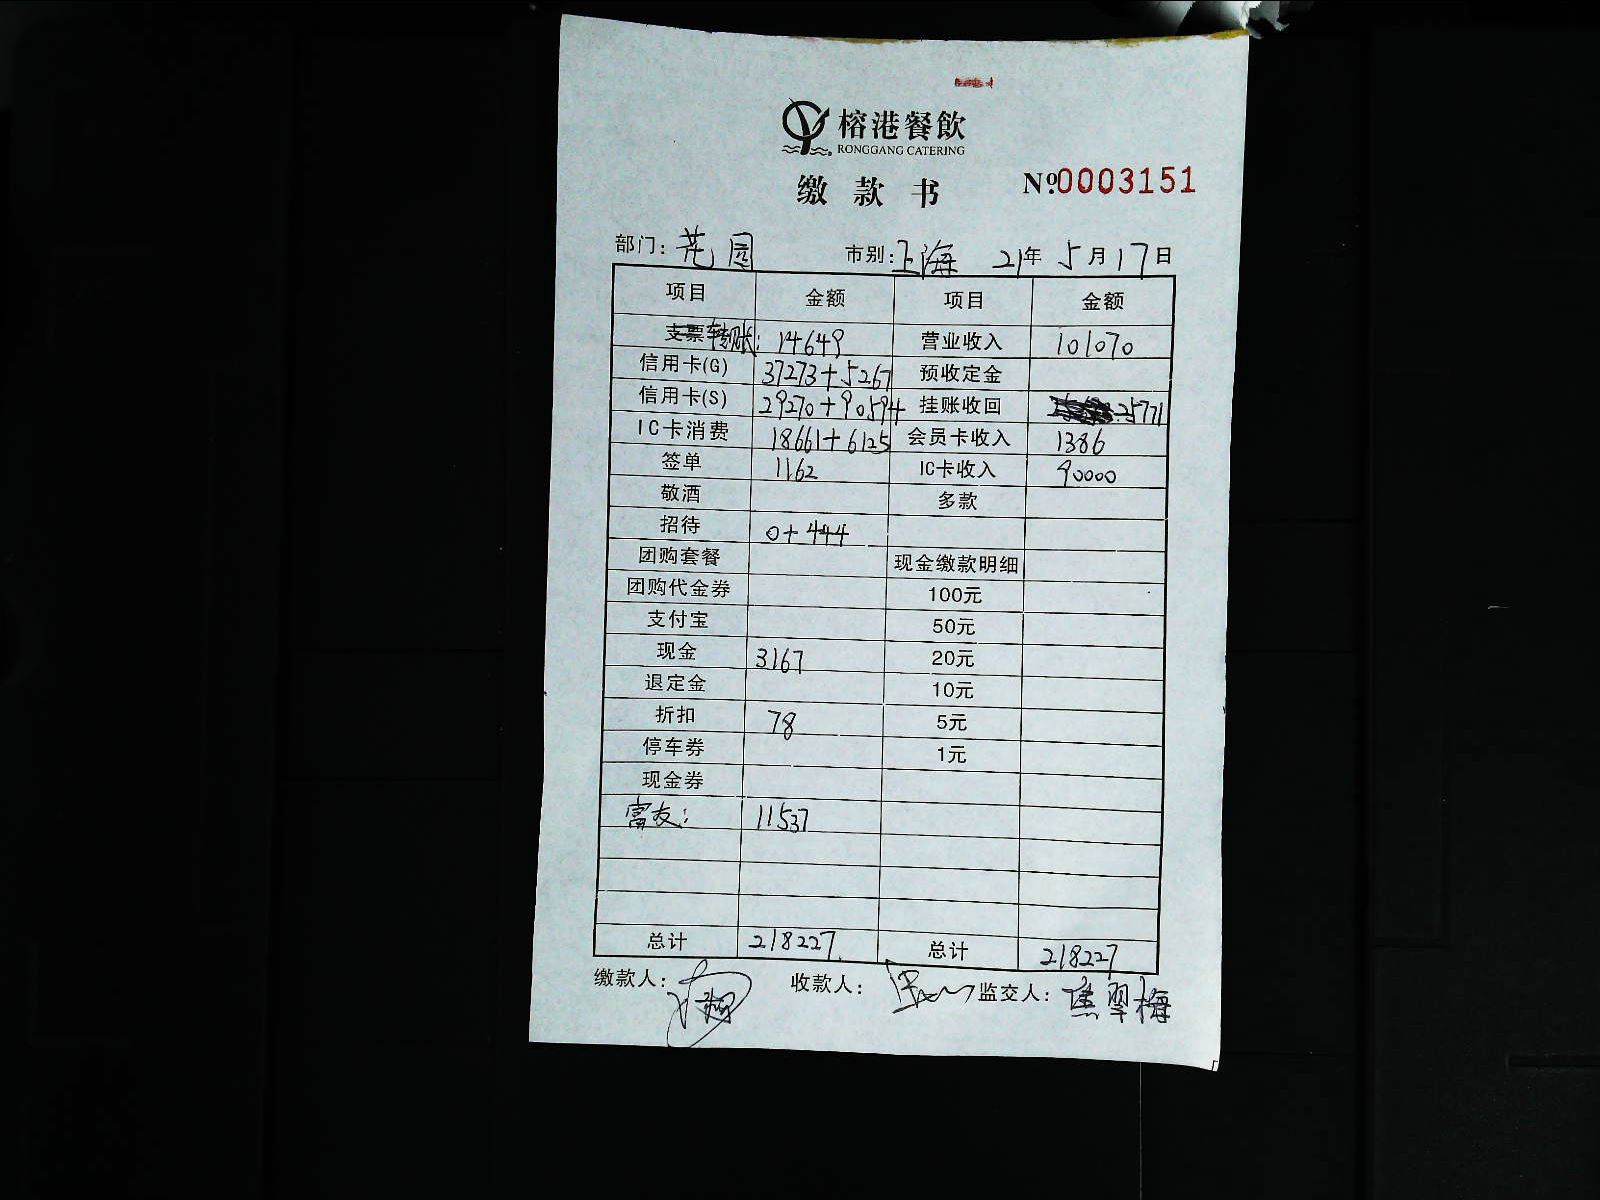 榕港餐飲
RONGGANG CATERING
缴款书 №0003151
部门: 花园 市别: 上海 21年 5月17日
项目 金额 项目 金额
支票 转账: 14649 营业收入 101070
信用卡(G) 37273+5267 预收定金
信用卡(S) 29270+90594 挂账收回 25771
IC卡消费 18661+6125 会员卡收入 1386
签单 1162 IC卡收入 90000
敬酒 多款
招待 0+444
团购套餐 现金缴款明细
团购代金券 100元
支付宝 50元
现金 3167 20元
退定金 10元
折扣 78 5元
停车券 1元
现金券
富友: 11537
总计 218227 总计 218227
缴款人: 收款人: 监交人: 焦翠梅